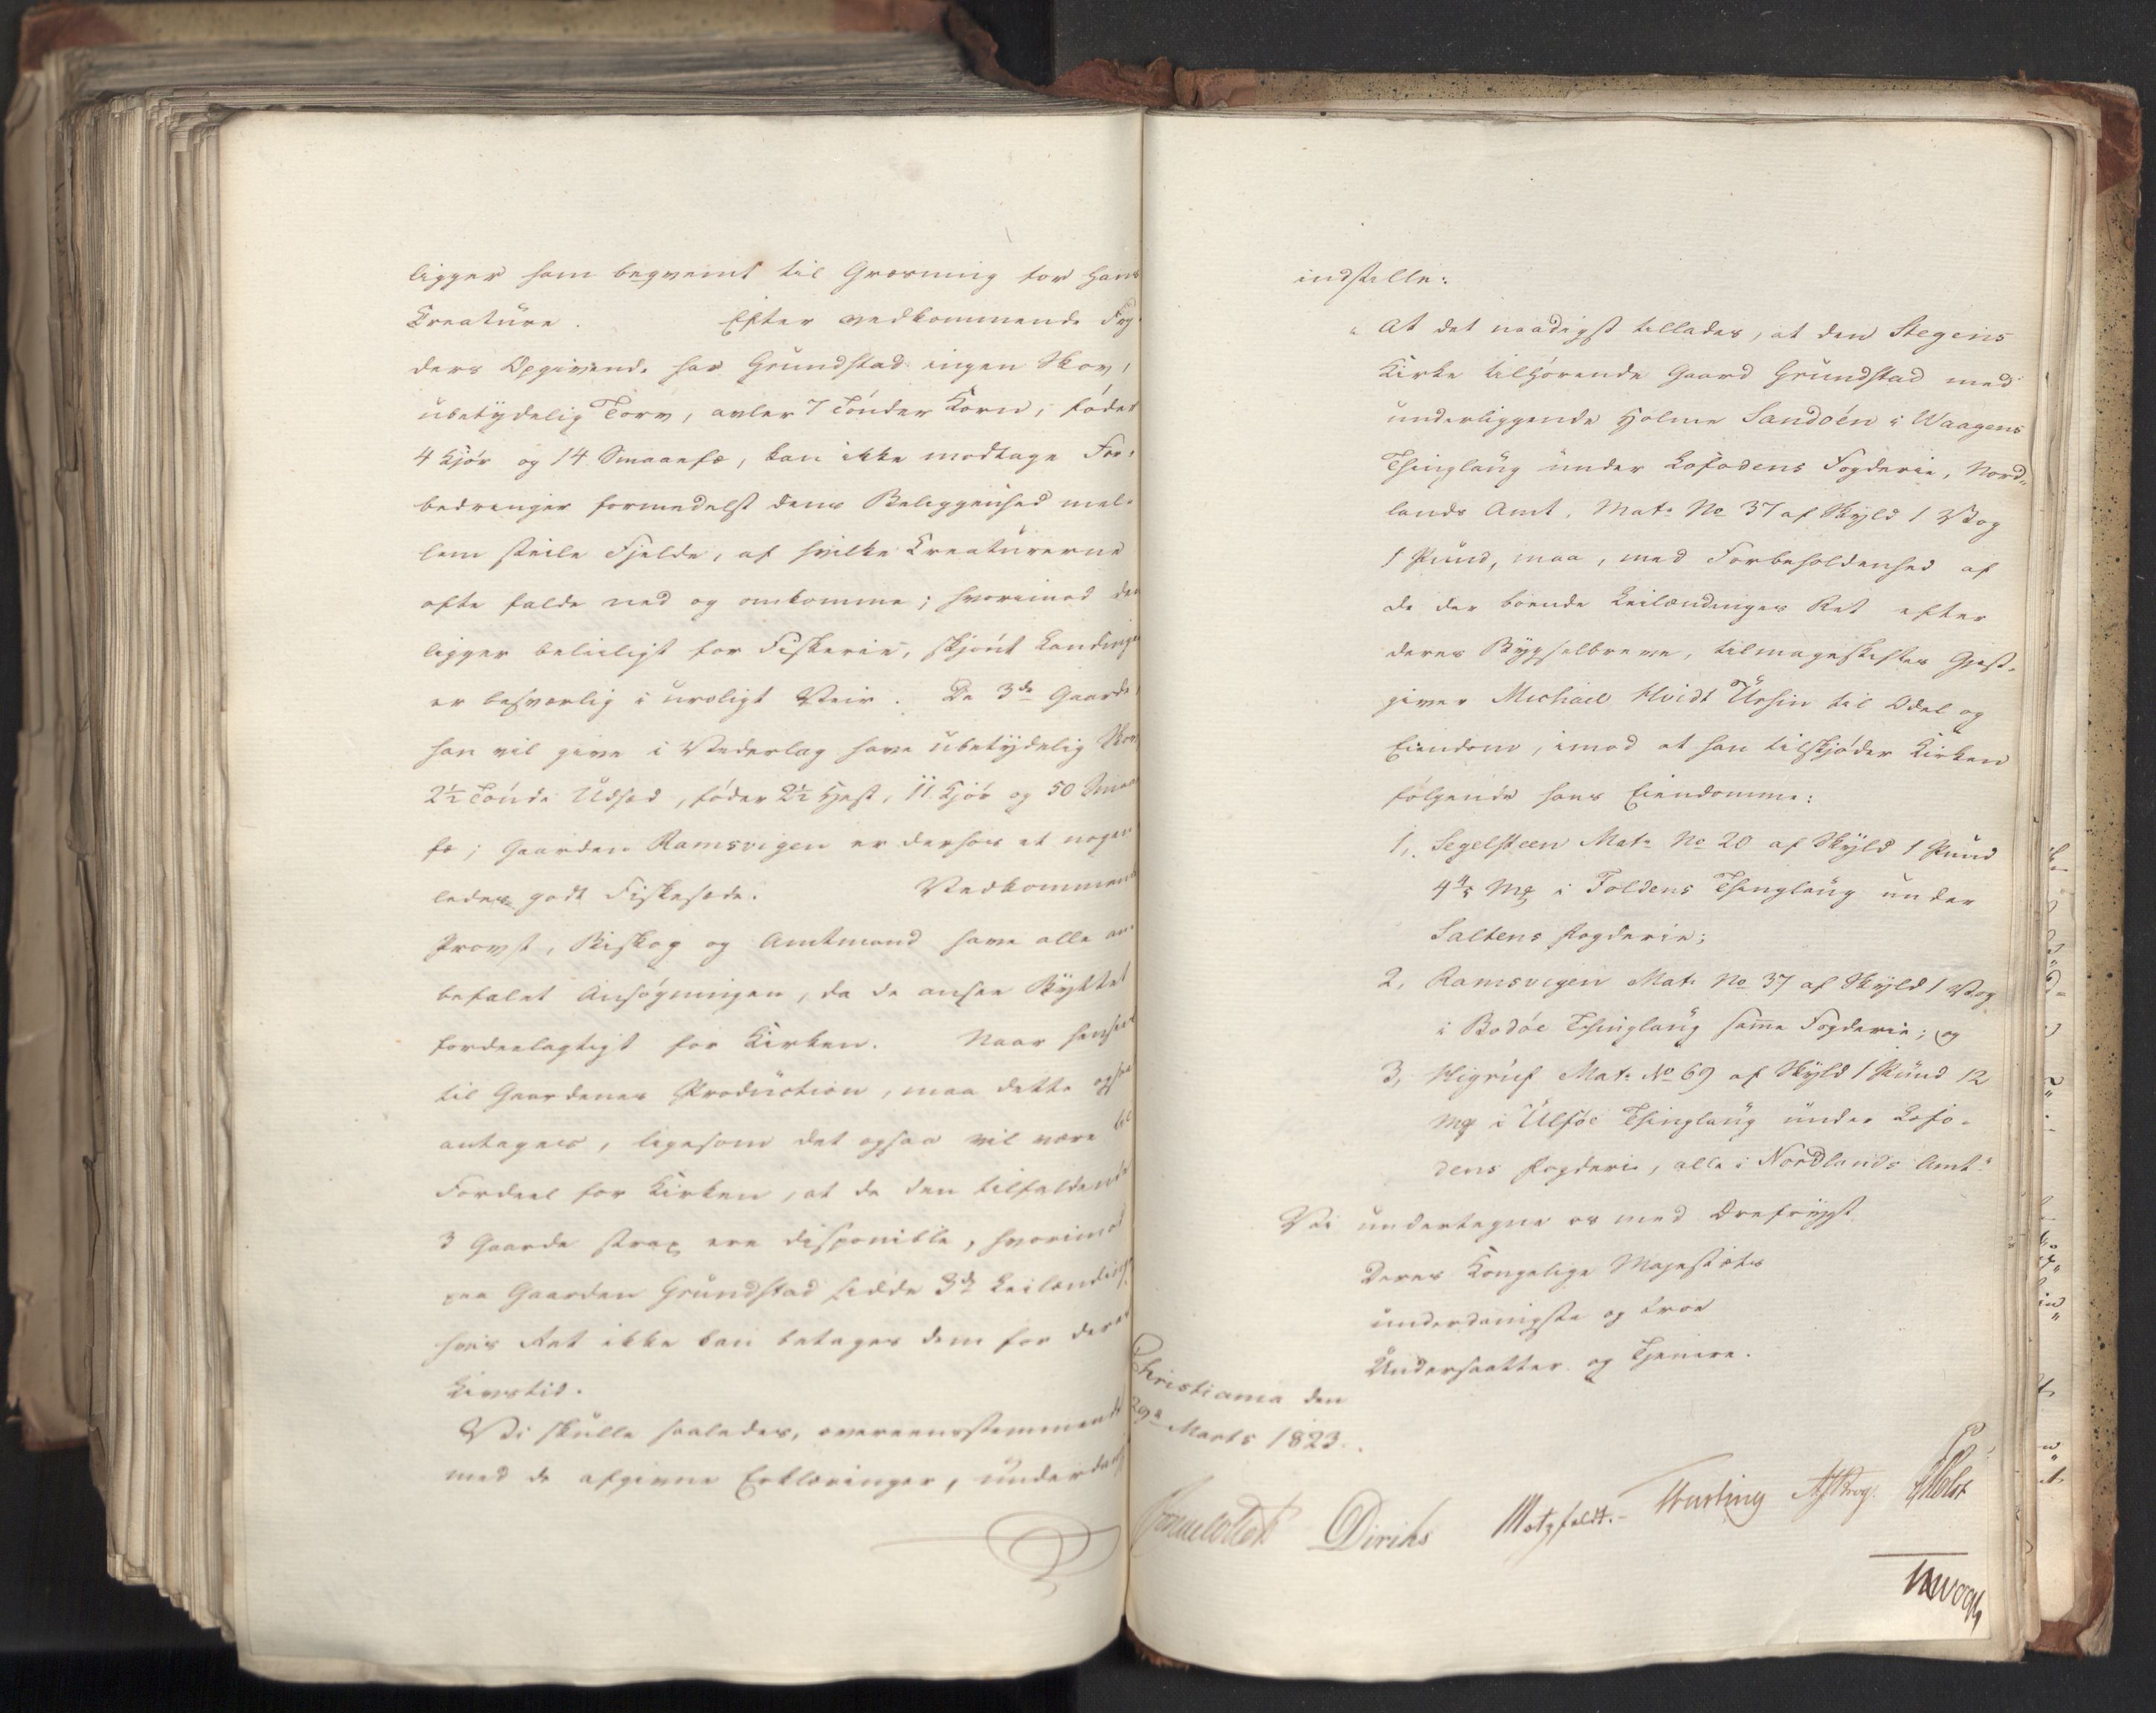 ligger ham beqvemt til Græsning for Hans
Creature. Efter vedkommende Fog-
ders Opgivende har Grundstad ingen Skov,
ubetydelig Torv, avler 7 Tønder Korn, føder
4 Kjør og 14 Smaaefæ, kan ikke modtage For-
bedringer formedelst dens Beliggenhed mel-
lem steile Fjelde, af hvilke Creaturerne
ofte falde ned og omkomme; hvorimod den
ligger beleiligt for Fiskerie, skjønt Landingen
er besværlig i uroligt Veir. De 3de Gaarde,
han vil give i Vederlag have ubetydelig Skov,
2½ Tønde Udsæd, føder 2½ Hest, 11 Kjør og 50 Smaa-
fæ; Gaarden Ramsvigen er derhos et nogen-
ledes godt Fiskesæde. Vedkommende
Provst, Biskop og Amtmand have alle an-
befalet Ansøgningen, da de ansee Byttet
fordeelagtigt for Kirken. Naar henseet
til Gaardenes Production, maa dette ogsaa
antages, ligesom det ogsaa vil være til
Fordeel for Kirken, at de den tilfaldende
3 Gaarde strax ere disponible, hvorimod
paa Gaarden Grundstad sidde 3de Leilændinge,
hvis Ret ikke kan betages dem for deres
Livstid.
Vi skulle saaledes, overeensstemmende
med de afgivne Erklæringer, underdanigst
indstille:
"At det naadigst tillades, at den Stegens
Kirke tilhørende Gaard Grundstad med
underliggende Holme Sandøen i Waagens
Thinglaug under Lofodens Fogderie, Nord-
lands Amt, Matr. No 37 af Skyld 1 Vog
1 Pund, maa, med Forbeholdenhed af
de der boende Leilændinges Ret efter
deres Bygselbreve, tilmageskiftes Gjest-
giver Michael Hvidt Ursin til Odel og
Eiendom, imod at han tilskjøder Kirken
følgende hans Eiendomme:
1, Segelsteen Matr. No 20 af Skyld 1 Pund
4 4/5 Mk i Foldens Thinglaug under
Saltens Fogderie;
2, Ramsvigen Matr. No 37 af Skyld 1 Vog
i Bodøe Thinglaug samme Fogderie; og
3, Higruf Matr. No 69 af Skyld 1 Pund 12
Mk i Ulføe Thinglaug under Lofo-
dens Fogderie, alle i Nordlands Amt."
Vi undertegne os med Ærefrygt
Deres Kongelige Majestæts
underdanigste og troe
Undersaatter og Tjenere.
Christiania den
29de Marts 1823.
Sommerhielm Diriks Motzfeldt. Krog. Holst
Vogt